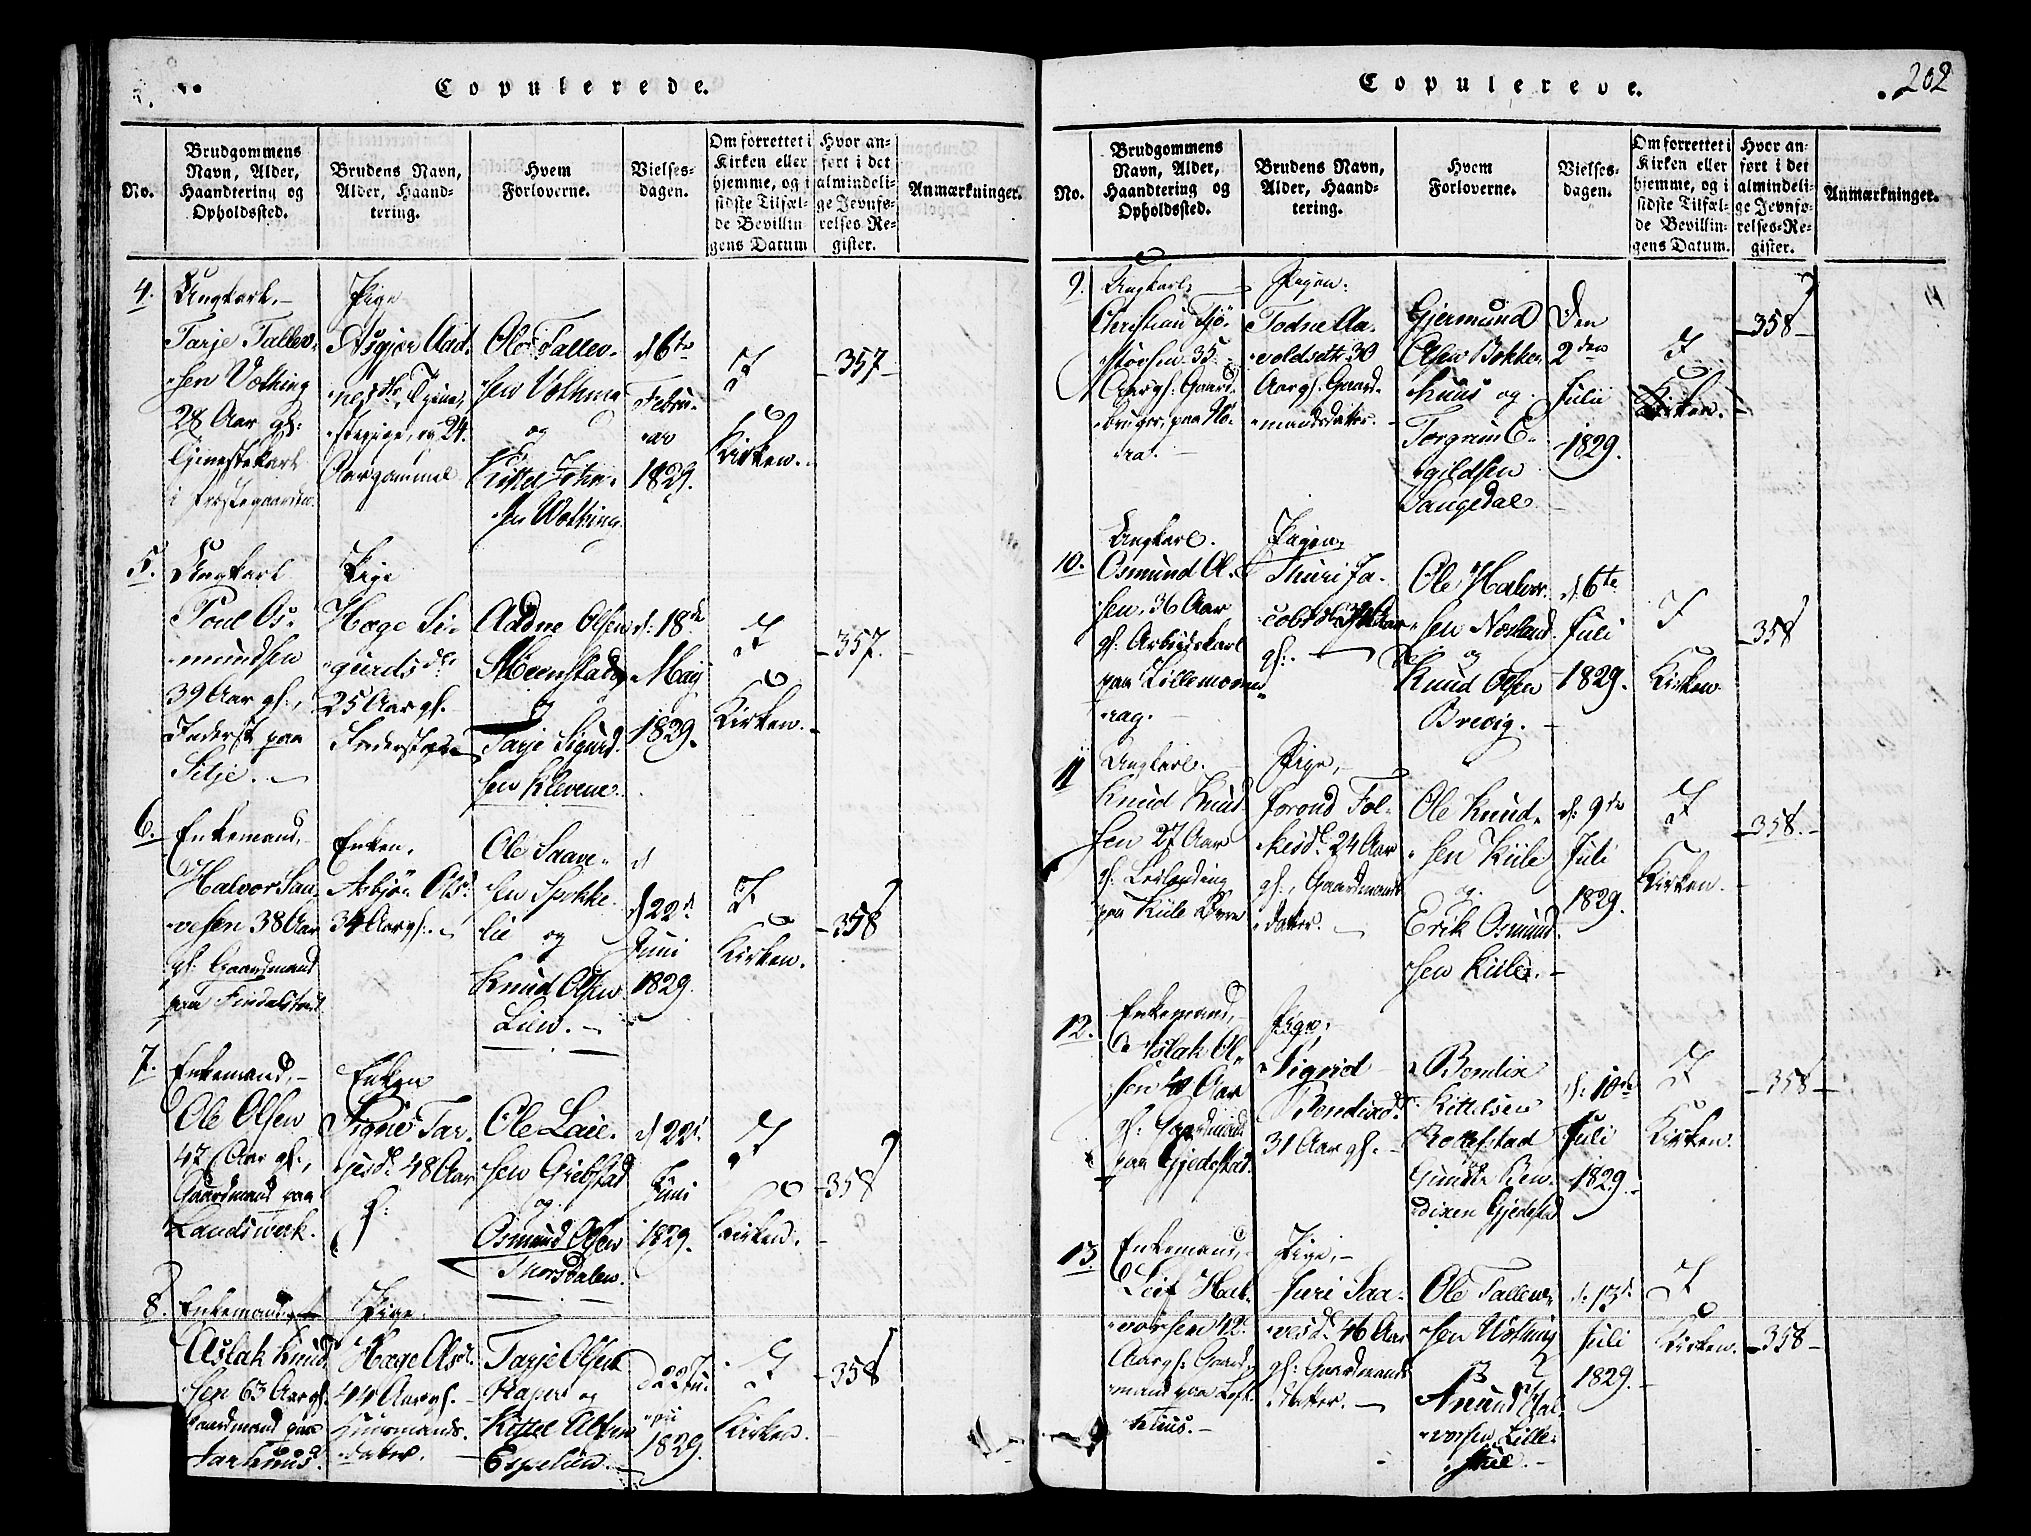 Copulerede.
No.
Brudgommens
Navn, Alder,
Haandtering og
Opholdssted.
Brudens Navn,
Alder, Haand-
tering.
Hvem
Forloverne.
Vielses-
dagen.
Om forrettet i
Kirken eller
hjemme, og i
sidste Tilfæl-
de Bevillin
gens Datum
Hvor an-
ført i det
almindeli-
ge Jevnfø-
relses-Re-
gister.
Anmærkninger.
4.
Ungkarl.
Tarje Tallev-
sen Vothing
28 Aar gl:
Tjenestekarl
i Præstegaarden.
Pige
24.
Aargammel
Ole Tallev-
sen
og
Kittel John-
sen Wothing.
d 6te
Febru-
ar
1829.
I
Kirken.
357
5.
Ungkarl
Poul Os-
mundsen
39 Aar gl.,
Inderst paa
Silje.
Pige
Hæge Si-
gurdsdr
25 Aar gl.
Aadne Olsen
og
Tarje Sigurd-
sen Klevene.
d: 18de
May
1829.
I
Kirken.
357.
6.
Enkemand,
Halvor Saa-
vesen 38 Aar
gl: Gaardmand
paa
Enken.
Asbjør Olsd.
34 Aar gl.
Ole Saave-
sen Spokke-
lie og
Knud Olsen
Lien.
d 22d
Juni
1829.
I
Kirken.
358
7.
Enkemand,
Ole Olsen
47 Aar gl.,
Gaardmand paa
Landsverk.
Enken
Signe Tar-
jesd. 48 Aar
gl:
Ole
sen Grebstad
og
Osmund Olsen
Thorsdalen.
d 22d
Juni
1829.
I
Kirken.
358
8.
Enkemand
Aslak Knud-
sen 63 Aar gl.
Gaardmand paa
Pige.
Hæge Asl.
44 Aar gl.
Huusmands-
datter.
Tarje Olsen
og
Kittel
Espelien.
d 22 Ju-
ni
1829.
I
Kirken.
358
Copulerede.
202
No.
Brudgommens
Navn, Alder,
Haandtering og
Opholdssted.
Brudens Navn,
Alder, Haand-
tering.
Hvem
Forloverne.
Vielses-
dagen.
Om forrettet i
Kirken eller
hjemme, og i
sidste Tilfæl-
de Bevillin-
gens Datum.
Hvor an-
ført i det
almindeli-
ge Jevnfø-
relses-Re-
gister.
Anmærkninger.
9.
Ungkarl.
Christian
35
Aar gl: Gaard-
bruger, paa
Pigen.
Todne Aa-
voldsdtr 30
Aar gl. Gaard-
mandsdatter.
Gjermund
Olsen Bakke-
huus og
Torgrim E-
gildsen
Saugedal
Den
2den
Julii
1829.
I
Kirken.
358
10.
Ungkarl.
Osmund Ol-
sen, 36 Aar
gl: Arbeidskarl
paa
Pigen
Thuri Ja-
cobsdr
gl:
Ole Halvor-
sen
og
Knud Olsen
Brevig.
d. 6te
Juli
1829.
I
Kirken.
358
11
Ungkarl.
Knud Knud-
sen 27 Aar
gl:
paa Kiile
Pige,
Jorond Fol-
kesd. 24 Aar
gl., Gaardmands-
datter.
Ole Knud-
sen Kiile
og
Erik Osmund-
sen Kiile.
d: 9de
Juli
1829.
I
Kirken.
358.
12.
Enkemand,
Aslak Ol-
sen 40 Aar
gl: Gaardmand
paa Gjedestad.
Pige,
Sigrid
Bendixd.
31 Aar gl.
Bendix
Kittilsen
Gunde Ben-
dixen Gjedestad
d: 10de
Juli
1829.
I
Kirken.
358
13.
Enkemand,
Leif Hal-
vorsen 42
Aar gl: Gaard-
mand paa
Pige,
Juri Saa-
vesd. 46 Aar
gl: Gaardmands-
datter.
Ole Talleiv-
sen Wothing
og
Anund Hal-
vorsen Lille-
d: 13d
Juli
1829.
I
Kirken.
358